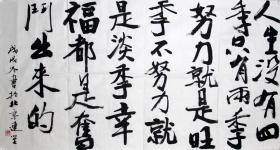 人生没有四
季只有两季
努力就是旺
季不努力就
是淡季幸
福都是奮
鬥出来的
戊戌年書於北京蓮堂